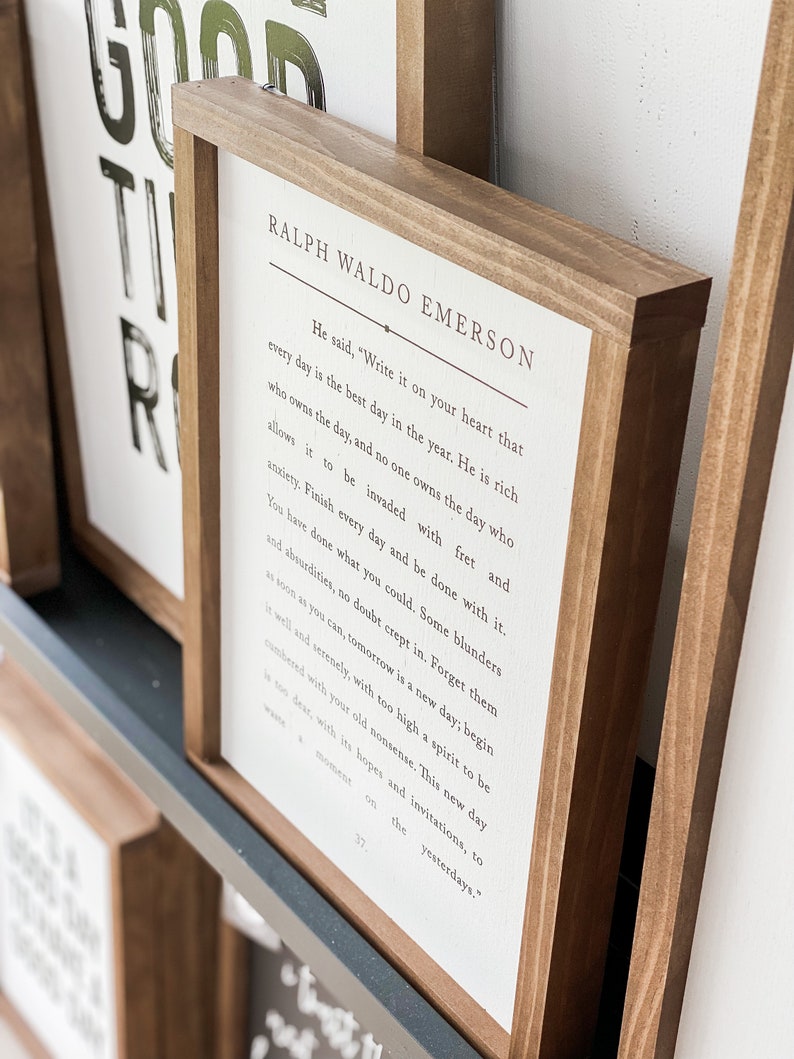 GOOD
TI
RO
RALPH WALDO EMERSON
He said, “Write it on your heart that
every day is the best day in the year. He is rich
who owns the day, and no one owns the day who
allows it to be invaded with fret and
anxiety. Finish every day and be done with it.
You have done what you could. Some blunders
and absurdities, no doubt crept in. Forget them
as soon as you can, tomorrow is a new day; begin
it well and serenely, with too high a spirit to be
cumbered with your old nonsense. This new day
is too dear, with its hopes and invitations, to
waste a moment on the yesterdays.”
37.
IT'S A
GOOD DAY
GOOD DAY